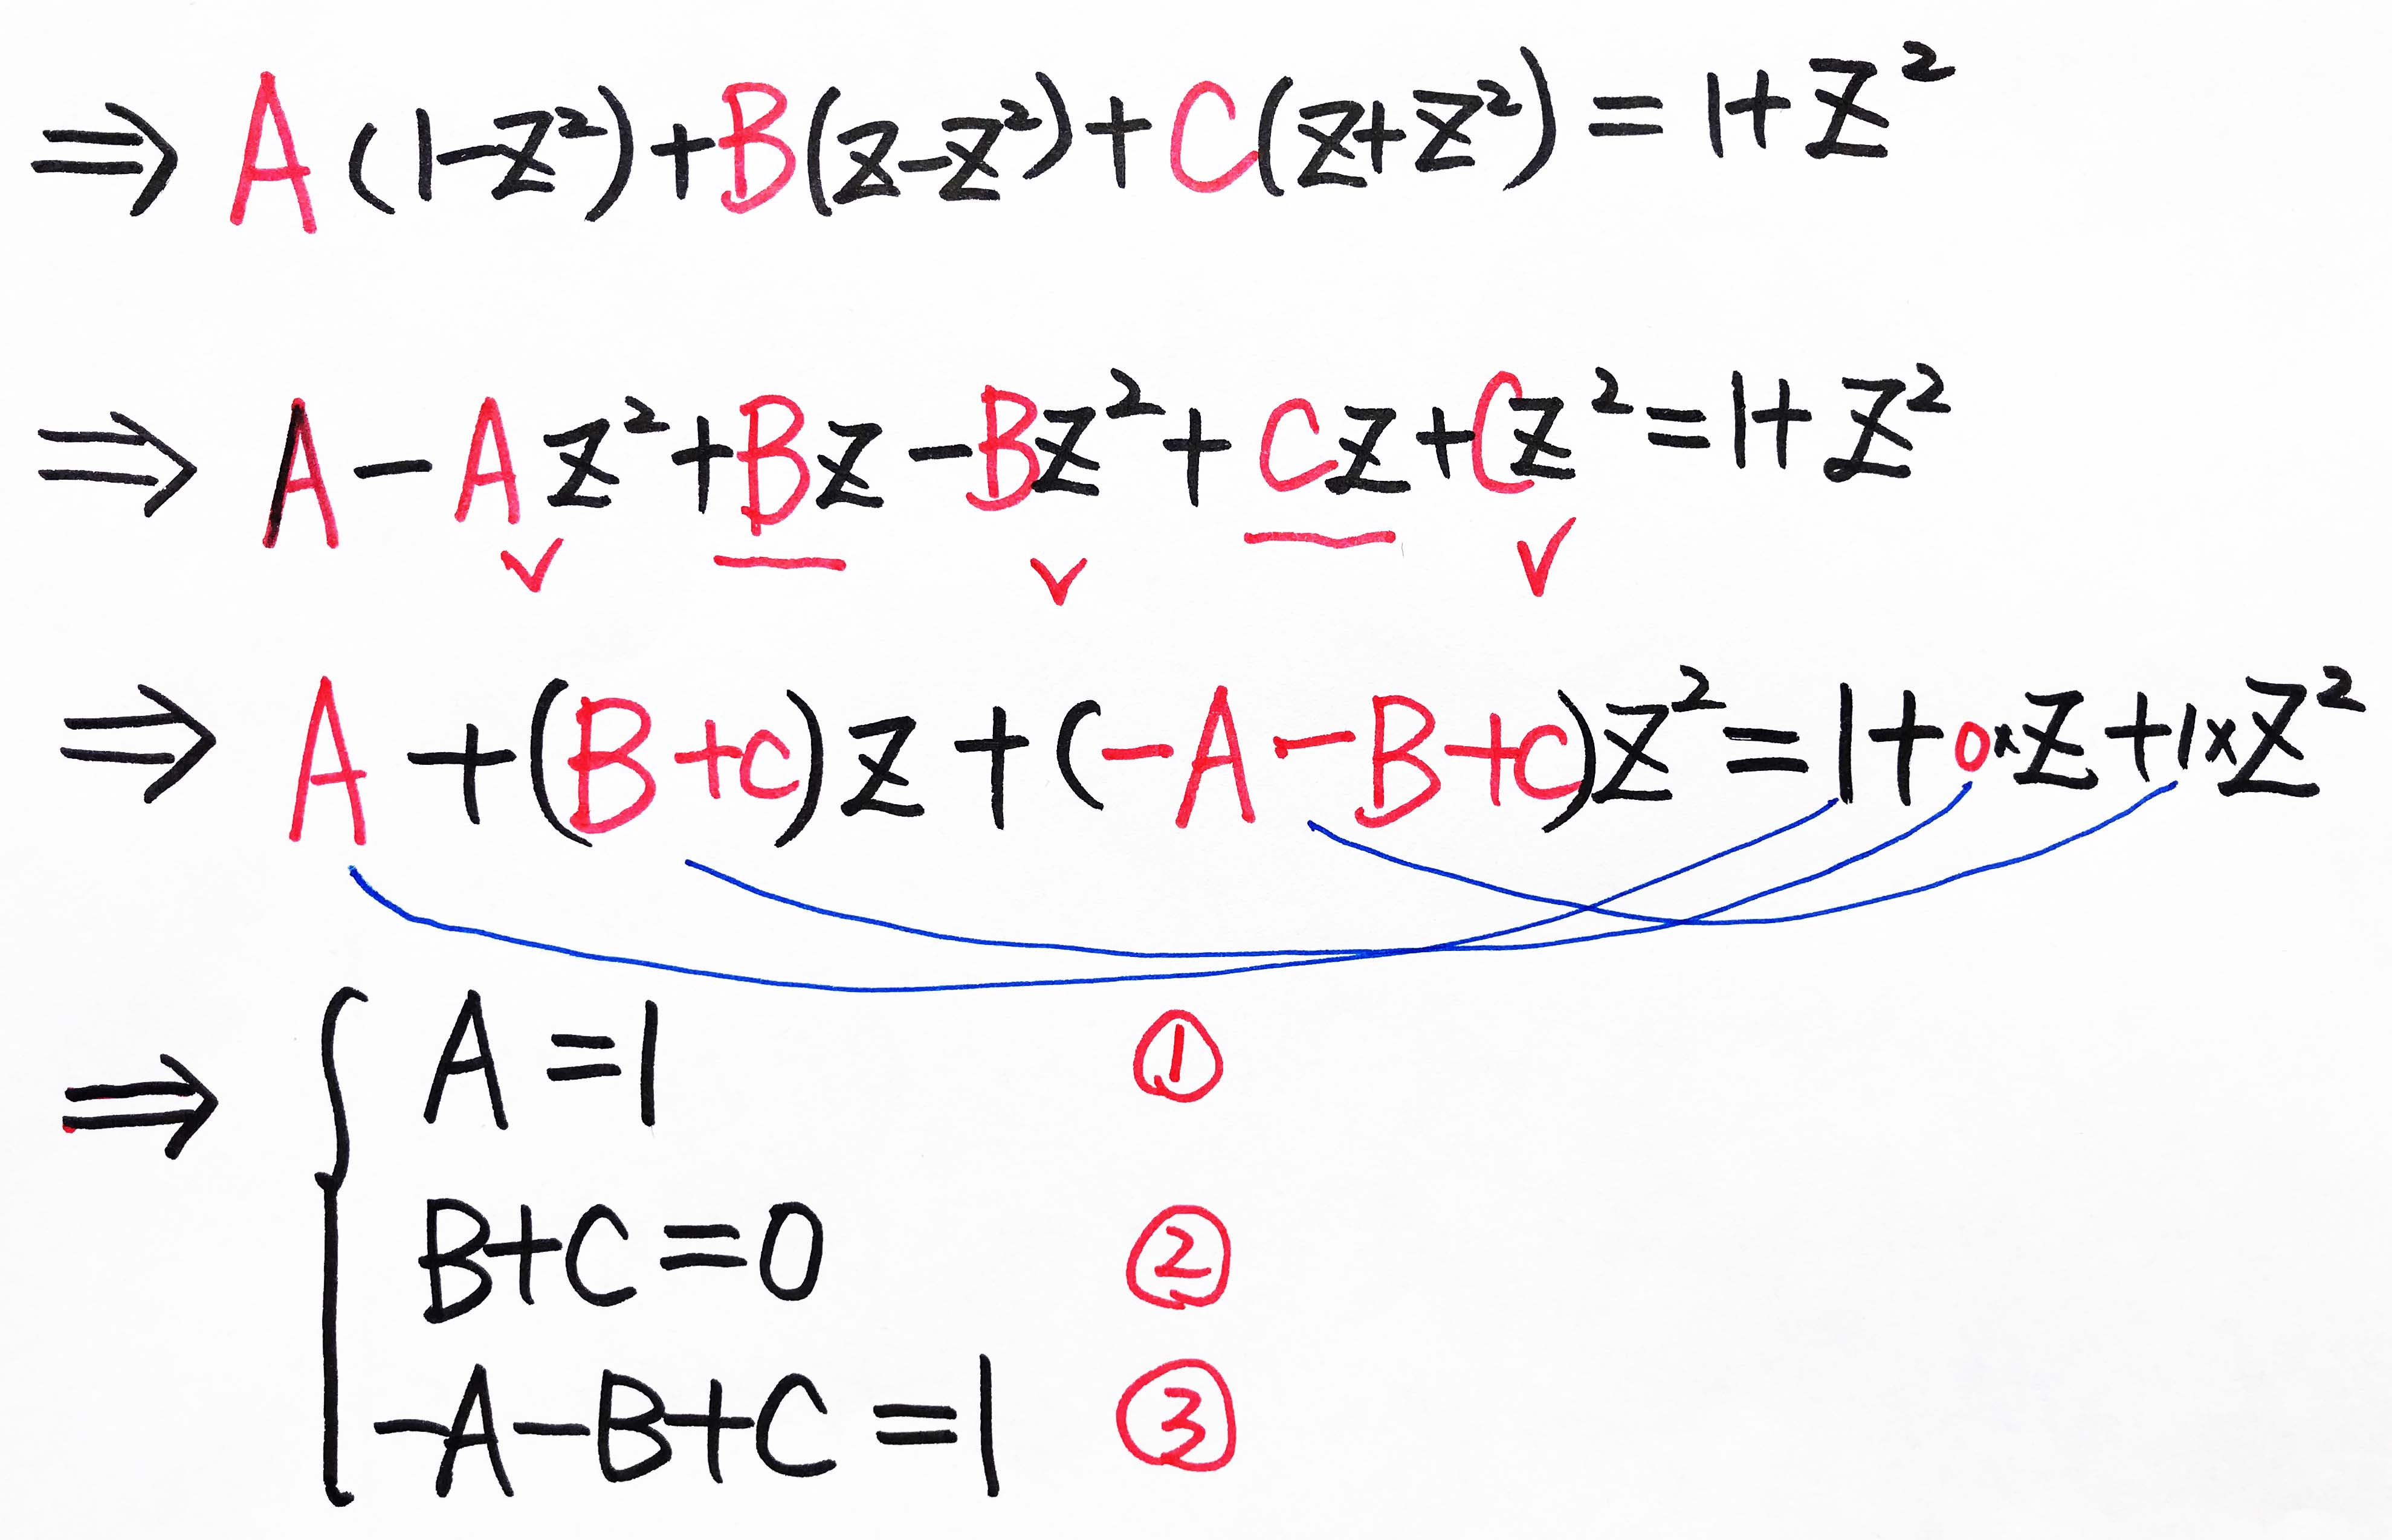 ⇒ A(1-z²)+B(z-z²)+C(z+z²)=1+z²
⇒ A-Az²+Bz-Bz²+Cz+Cz²=1+z²
⇒ A+(B+C)z+(-A-B+C)z²=1+0×z+1×z²
⇒ { A=1 ①
B+C=0 ②
-A-B+C=1 ③